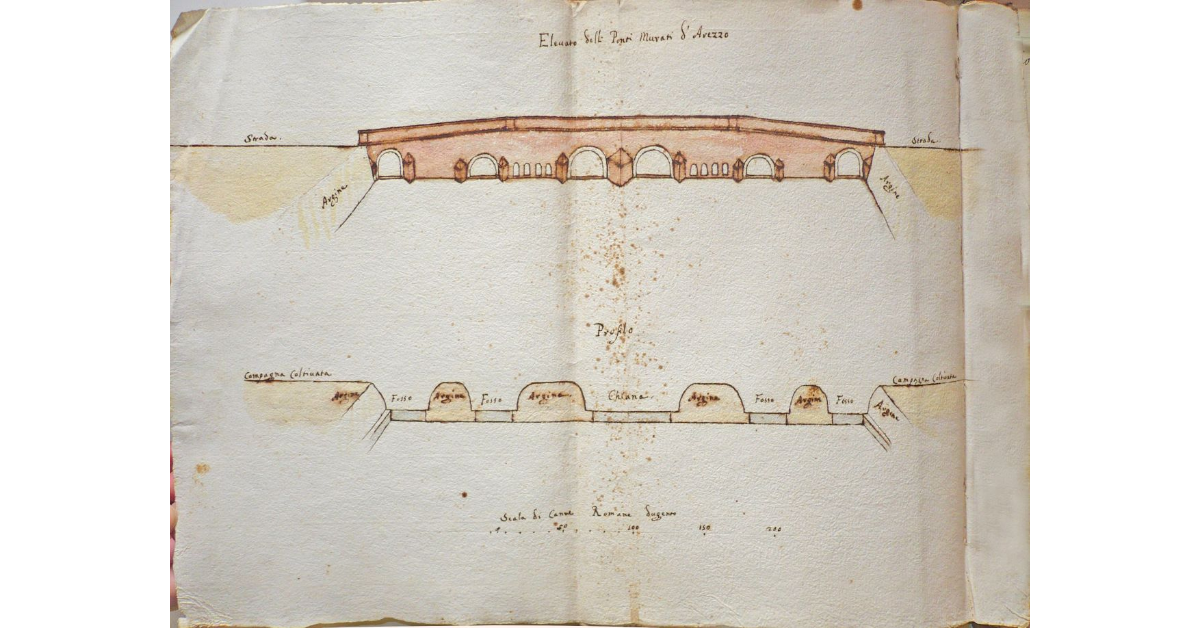 Elevato delli Ponti Murati d'Arezzo
Strada.
Strada.
Argine
Argine
Profilo
Campagna Coltivata
Campagna Coltivata
Argine Fosso Argine Fosso Argine Chiana Argine Fosso Argine Fosso Argine
Scala di Canne Romane dugento
50 100 150 200